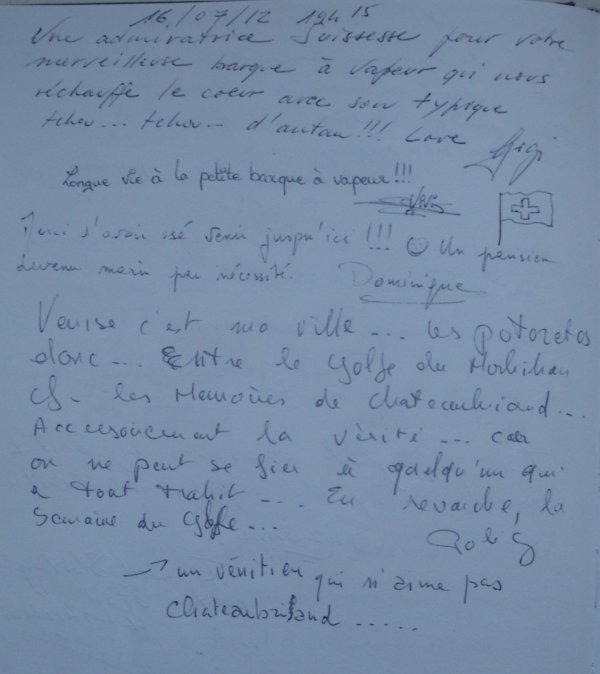 16/07/12 12h15
Une admiratrice Suissesse pour votre
merveilleuse barque à vapeur qui nous
réchauffe le coeur avec son typique
tchou... tchou... d'autan!!! Love Gigi
Longue vie à la petite barque à vapeur!!!
Merci d'avoir osé venir jusqu'ici!!! ☺ Un parisien
devenu marin par nécessité. Dominique
Venise c'est ma ville... les
donc... Entre le Golfe du Morbihan
les Memoires de Chateaubriand...
la vérité... car
on ne peut se fier à quelqu'un qui
a tout trahit... En revanche, la
Semaine du Golfe...
→ un vénitien qui n'aime pas
Chateaubriand .....